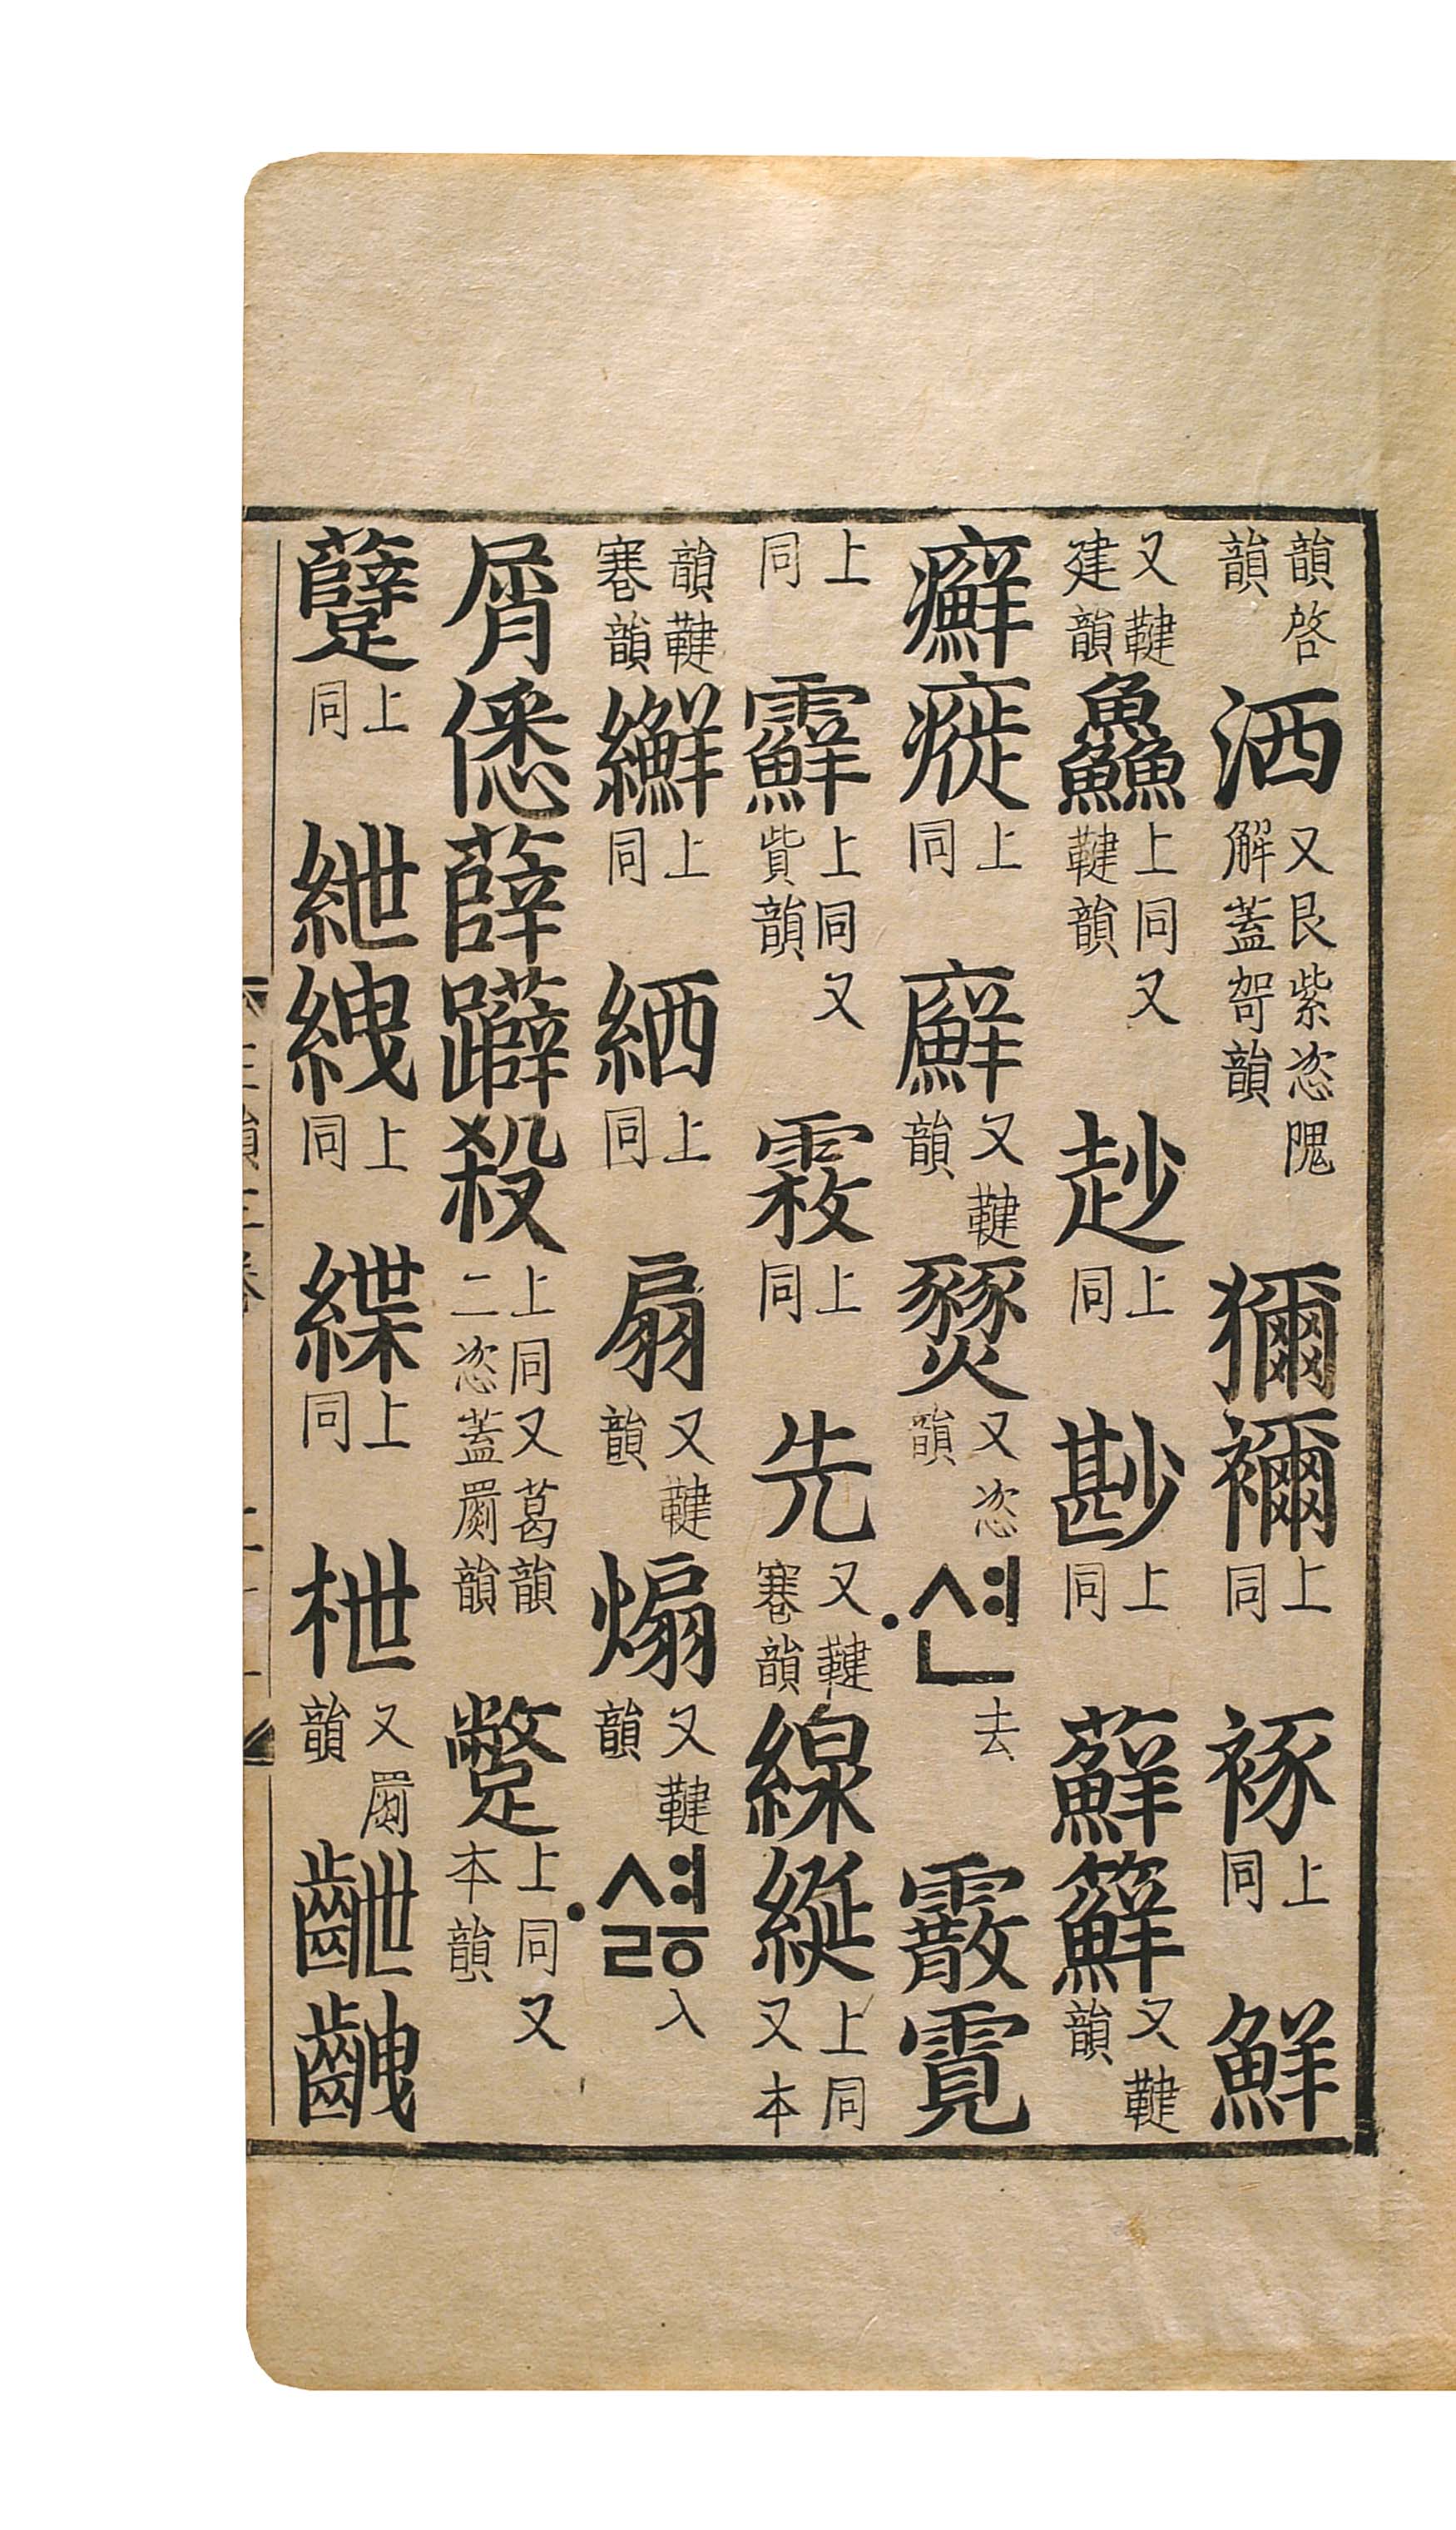 韻啓韻洒又艮紫恣隗解蓋哿韻獮禰上同祿上同鮮
又鞬建韻鱻上同又鞬韻赻上同尟上同蘚䉳又鞬韻
癬㾌上同廯又鞬韻燹又恣韻·션去霰䨘
上同䨷上同又貲韻䨛上同先又鞬寋韻線綖上同又本
韻鞬寋韻䌲上同綇上同扇又鞬韻煽又鞬韻·셚入
屑僁薛躠殺上同又葛韻二恣蓋罽韻蹩上同又本韻
躄上同紲絏上同緤上同枻又罽韻齛䶝